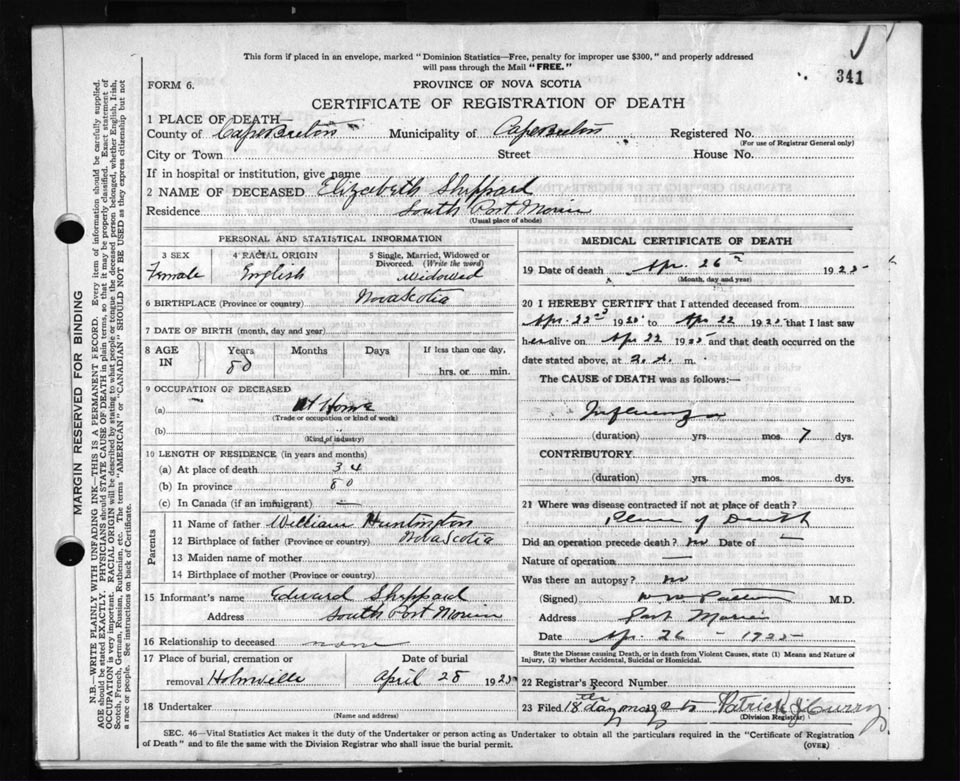 This form if placed in an envelope, marked "Dominion Statistics—Free, penalty for improper use $300," and properly addressed
will pass through the Mail "FREE."
341
FORM 6.
PROVINCE OF NOVA SCOTIA
CERTIFICATE OF REGISTRATION OF DEATH
1 PLACE OF DEATH—
County of Cape Breton Municipality of Cape Breton Registered No.
(For use of Registrar General only)
City or Town Street House No.
If in hospital or institution, give name
2 NAME OF DECEASED Elizabeth Sheppard
Residence South Port Morien
(Usual place of abode)
PERSONAL AND STATISTICAL INFORMATION
3 SEX
Female
4 RACIAL ORIGIN
English
5 Single, Married, Widowed or
Divorced. (Write the word)
Widowed
6 BIRTHPLACE (Province or country) Nova Scotia
7 DATE OF BIRTH (month, day and year)
8 AGE
IN
Years
80
Months
Days
If less than one day,
hrs. or min.
9 OCCUPATION OF DECEASED
(a) At Home
(Trade or occupation or kind of work)
(b)
(Kind of industry)
10 LENGTH OF RESIDENCE (in years and months)
(a) At place of death 34
(b) In province 80
(c) In Canada (if an immigrant) —
Parents
11 Name of father William Huntington
12 Birthplace of father (Province or country) Nova Scotia
13 Maiden name of mother
14 Birthplace of mother (Province or country)
15 Informant's name Edward Sheppard
Address South Port Morien
16 Relationship to deceased none
17 Place of burial, cremation or
removal Holmville
Date of burial
April 28 1925
18 Undertaker
(Name and address)
MEDICAL CERTIFICATE OF DEATH
19 Date of death Apr. 26th 1925
(Month, day and year)
20 I HEREBY CERTIFY that I attended deceased from
Apr 22nd 1925 to Apr 22 1925 that I last saw
her alive on Apr 22 1925 and that death occurred on the
date stated above, at 2 A. m.
The CAUSE of DEATH was as follows:—
Influenza
(duration) yrs. mos. 7 dys.
CONTRIBUTORY.
(duration) yrs. mos. dys.
21 Where was disease contracted if not at place of death?
Place of Death
Did an operation precede death? no Date of —
Nature of operation —
Was there an autopsy? no
(Signed) M.D.
Address Port Morien
Date Apr. 26 - 1925
State the Disease causing Death, or in death from Violent Causes, state (1) Means and Nature of
Injury, (2) whether Accidental, Suicidal or Homicidal.
22 Registrar's Record Number
23 Filed 18th day May Patrick J Curry
(Division Registrar)
SEC. 46—Vital Statistics Act makes it the duty of the Undertaker or person acting as Undertaker to obtain all the particulars required in the "Certificate of Registration
of Death" and to file the same with the Division Registrar who shall issue the burial permit.
(OVER)
MARGIN RESERVED FOR BINDING
N.B.—WRITE PLAINLY WITH UNFADING INK—THIS IS A PERMANENT RECORD. Every item of information should be carefully supplied.
AGE should be stated EXACTLY. PHYSICIANS should STATE CAUSE OF DEATH in plain terms, so that it may be properly classified. Exact statement of
OCCUPATION is very important. RACIAL ORIGIN will be described by stating to what people or tongue the deceased person belonged, whether English, Irish,
Scotch, French, German, Russian, Ruthenian, etc. The terms "AMERICAN" or "CANADIAN" SHOULD NOT BE USED as they express citizenship but not
a race or people. See instructions on back of Certificate.